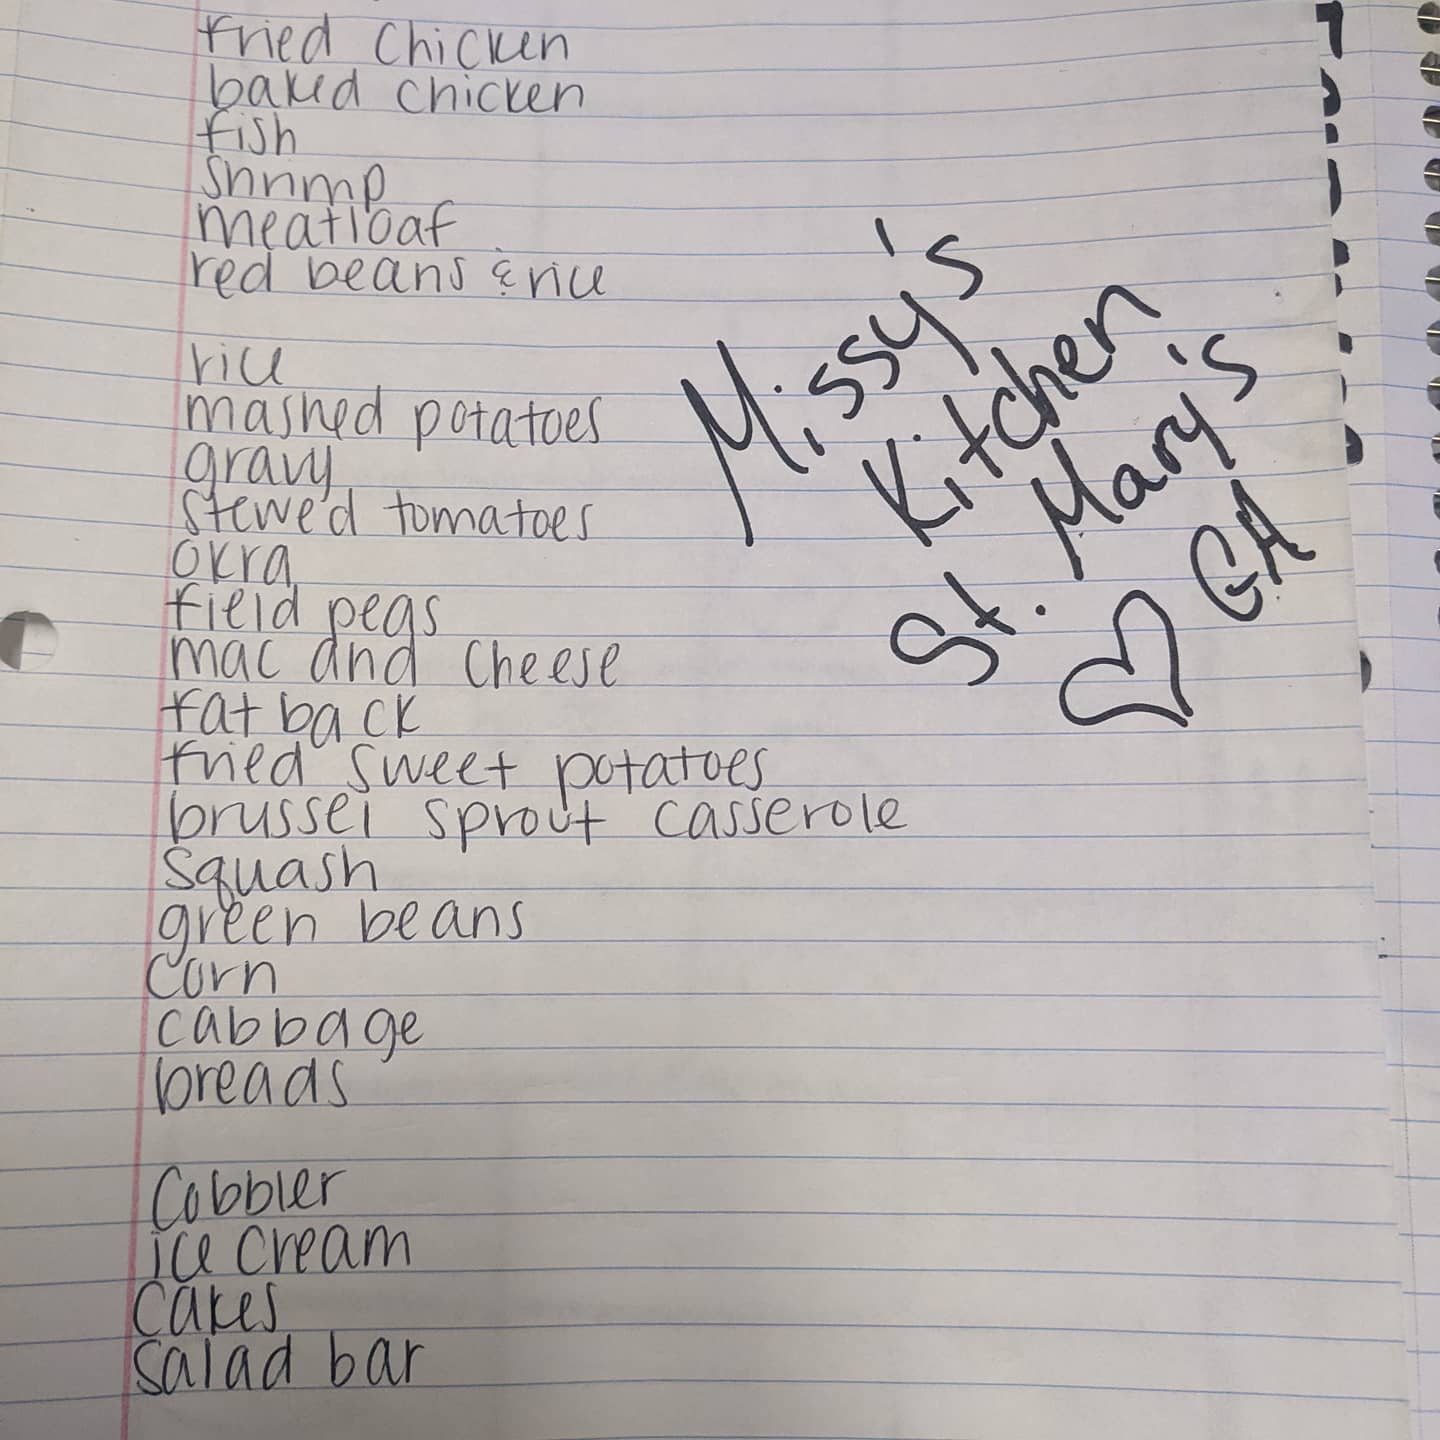 fried chicken
baked chicken
fish
shrimp
meatloaf
red beans & rice
rice
mashed potatoes
gravy
stewed tomatoes
okra
field peas
mac and cheese
fat back
fried sweet potatoes
brussel sprout casserole
squash
green beans
corn
cabbage
breads
Cobbler
ice cream
cakes
salad bar
Missy's
Kitchen
St. Mary's
GA